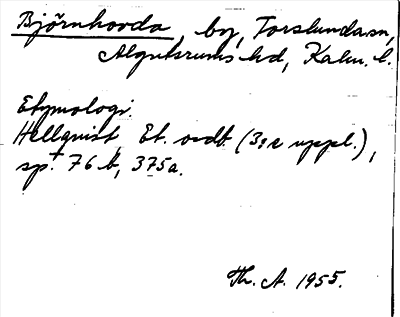 Björnhovda, by, Torslunda sn,
Algutsrums hd, Kalm. l.
Etymologi.
Hellquist, Et. ordb. (3:e uppl.),
sp. 76 b, 375a.
Th. A. 1955.